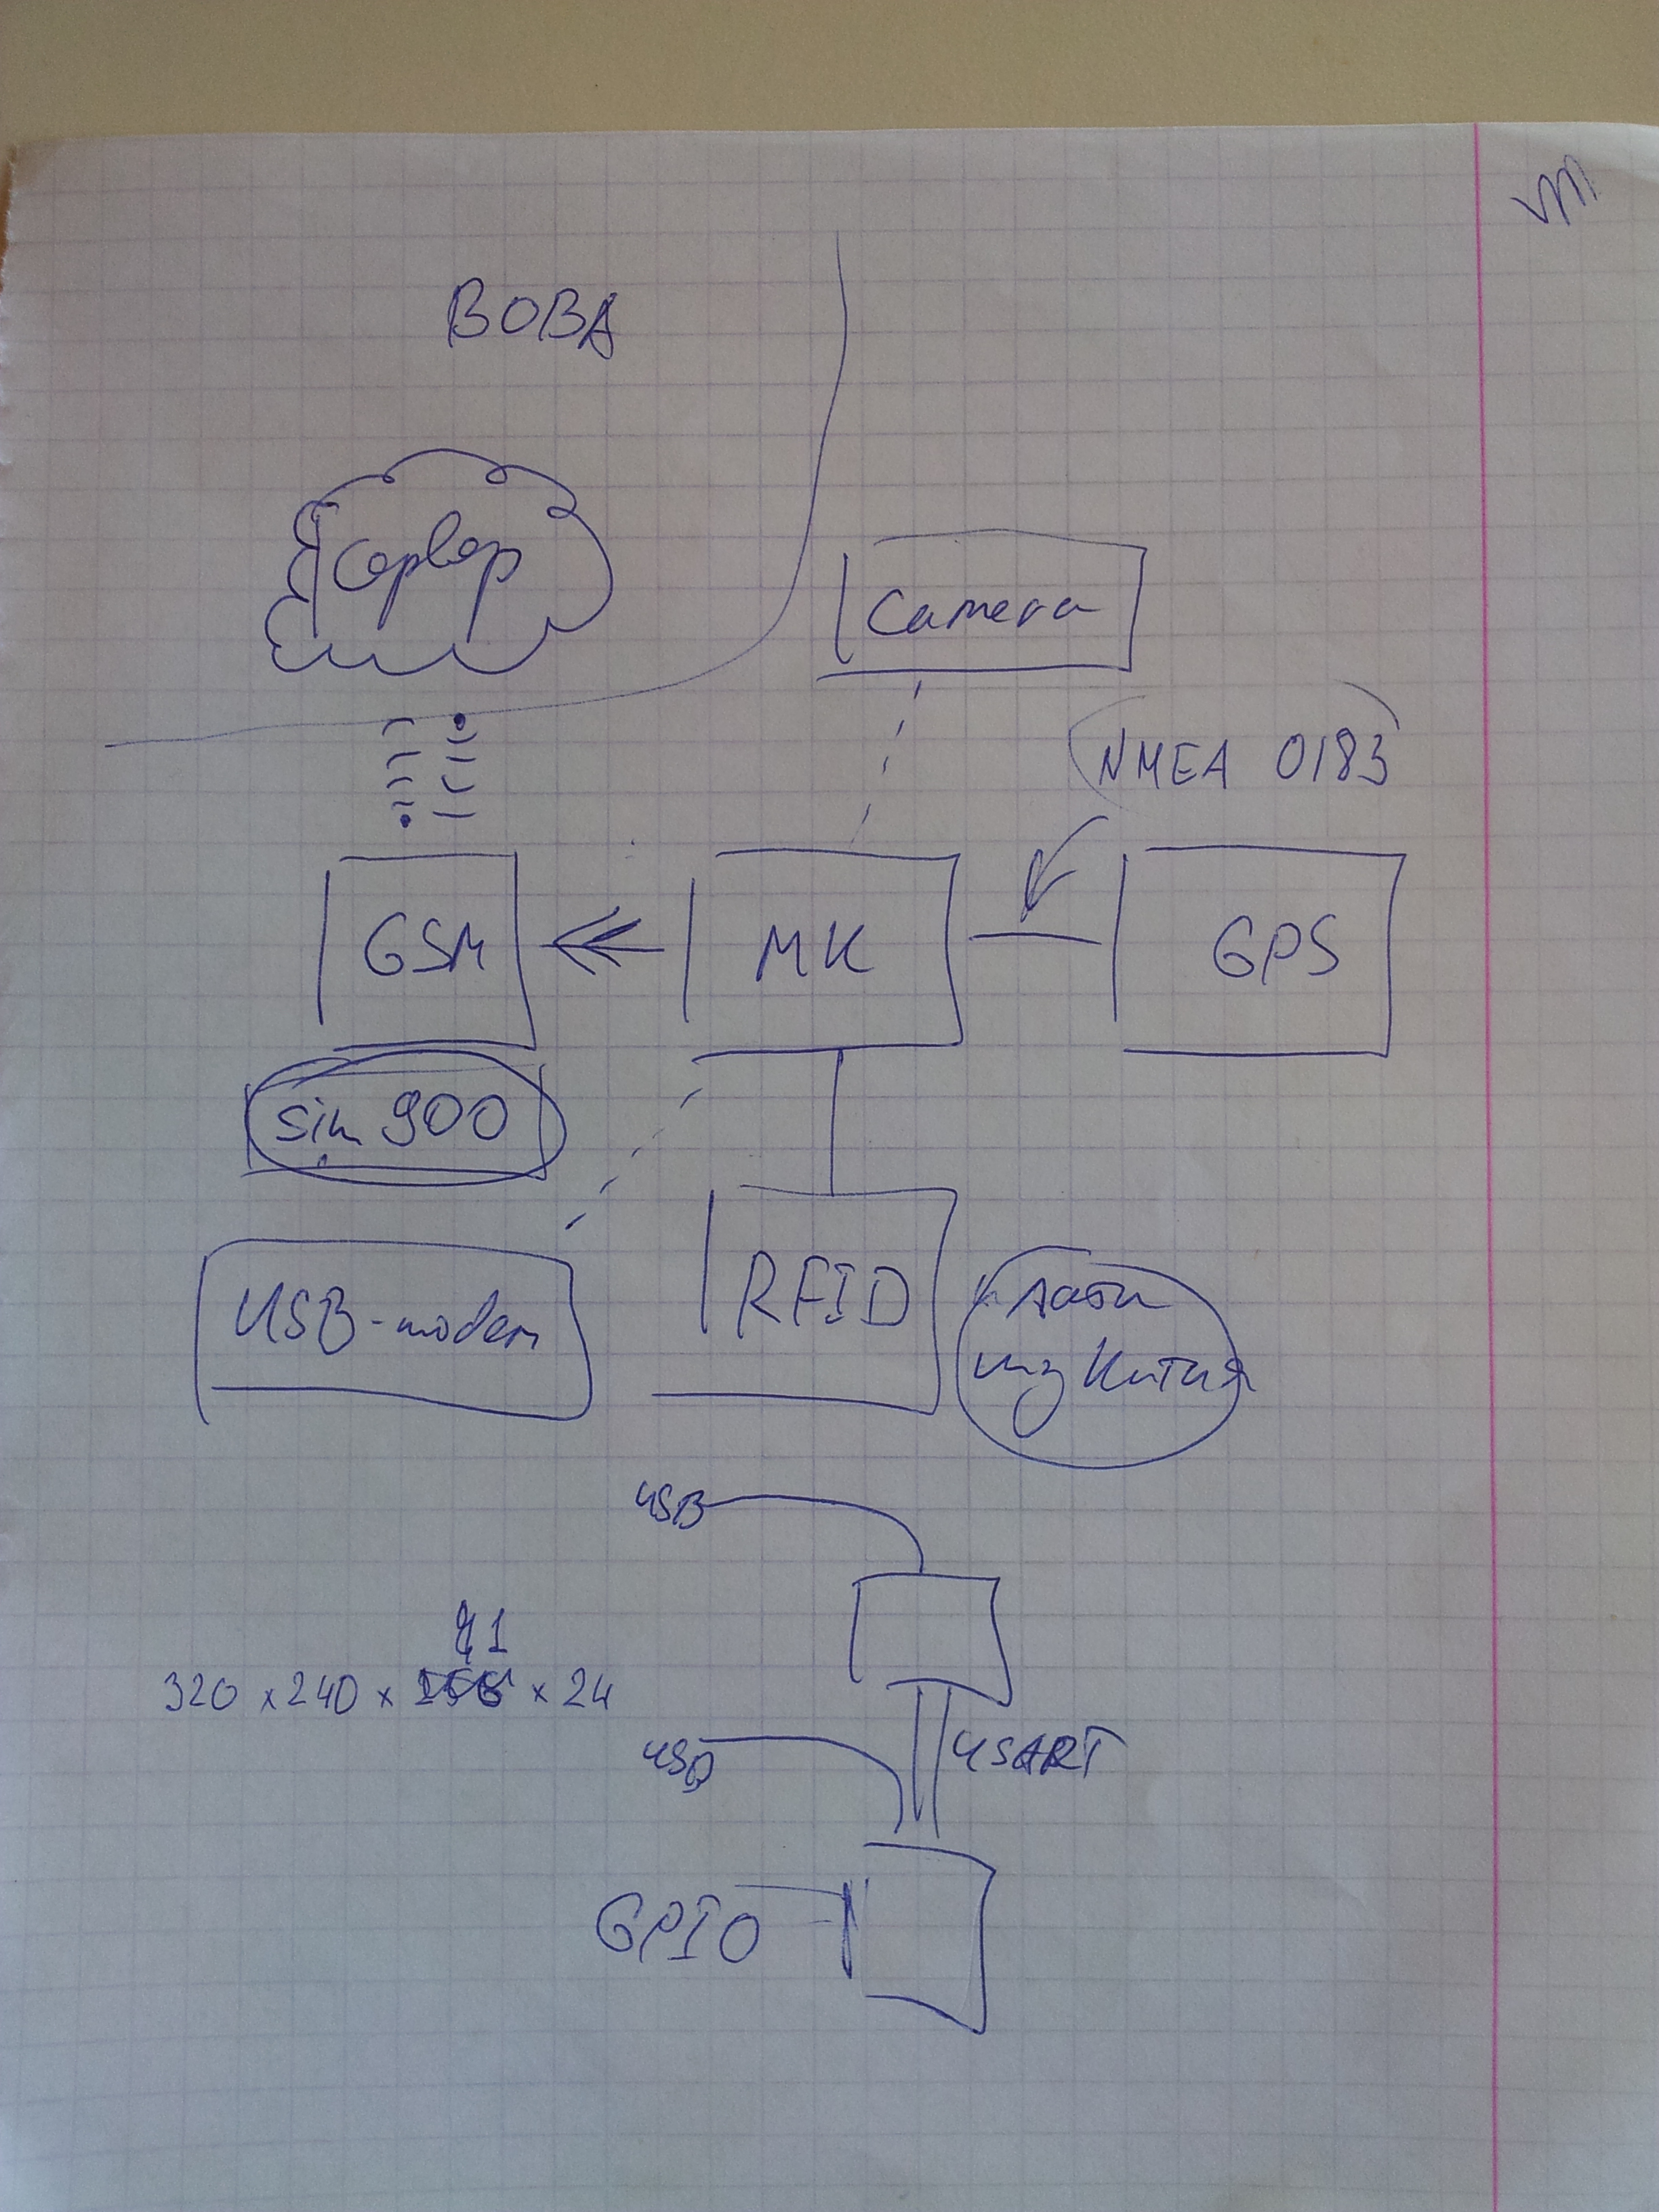 ВОВА
сервер
Camera
NMEA 0183
GSM
МК
GPS
sim 900
USB-modem
RFID
из Китая
USB
41
320 x 240 x 256 x 24
USB
USART
GPIO